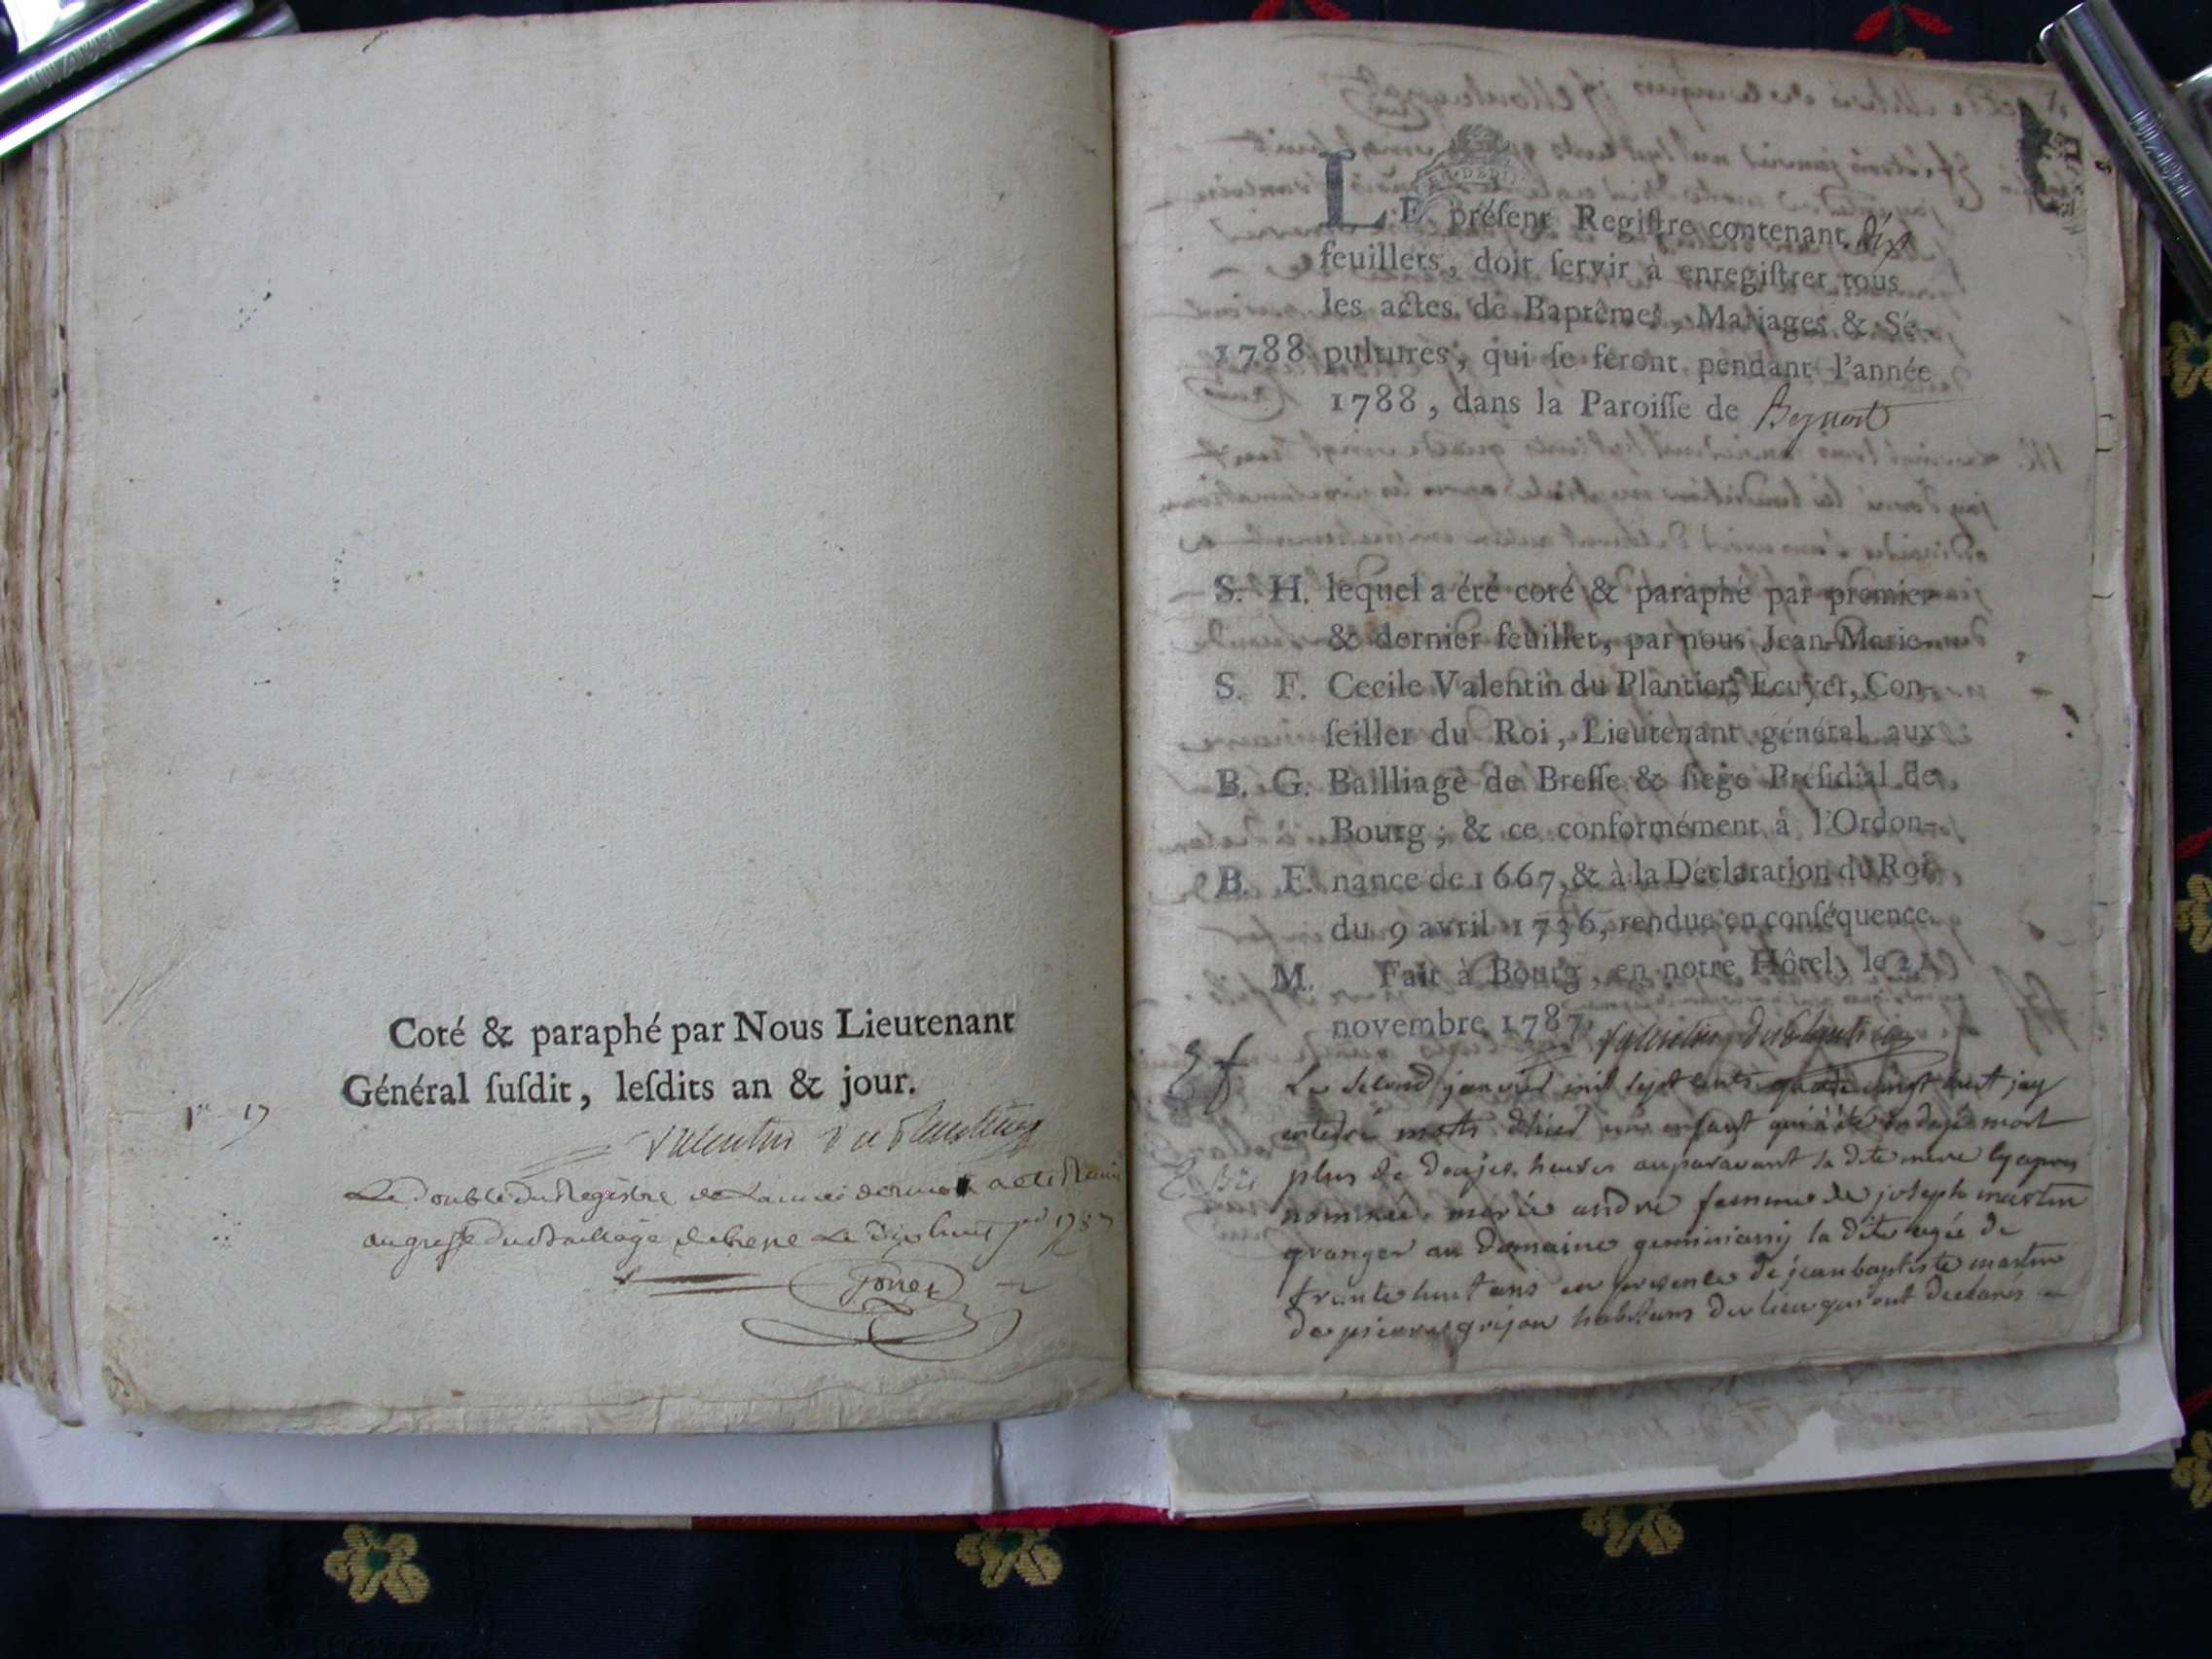 Coté & paraphé par Nous Lieutenant
Général ſuſdit, leſdits an & jour.
Valentin du Plantier
Le double du Registre de l'année derniere a été Remis
au greffe du Bailliage de bresse Le dix huit 1787
LE préſent Regiſtre contenant dix
feuillets, doit ſervir à enregiſtrer tous
les actes de Baptêmes, Mariages & Sé-
1788 pultures, qui ſe feront pendant l'année
1788, dans la Paroiſſe de Beynost
S. H. lequel a été coté & paraphé par premier
& dernier feuillet, par nous Jean-Marie-
S. F. Cecile Valentin du Plantier, Ecuyer, Con-
ſeiller du Roi, Lieutenant général aux
B. G. Bailliage de Breſſe & ſiege Préſidial de
Bourg; & ce conformément à l'Ordon-
B. F. nance de 1667, & à la Déclaration du Roi
du 9 avril 1736, rendue en conſéquence.
M. Fait à Bourg, en notre Hôtel, le 21
novembre 1787. Valentin du Plantier
Le second janvier mil sept cents quatre vingt huit jay
enterré morts d'hier une enfant qui a été ondoyé mort
plus de douzes heures auparavant sa dite mere cy apres
nommée marie andré femme de joseph martin
granger au domaine la dite agée de
trante huit ans en presence de jean baptiste martin
de pierre grijon habitans du lieu qui ont declarés